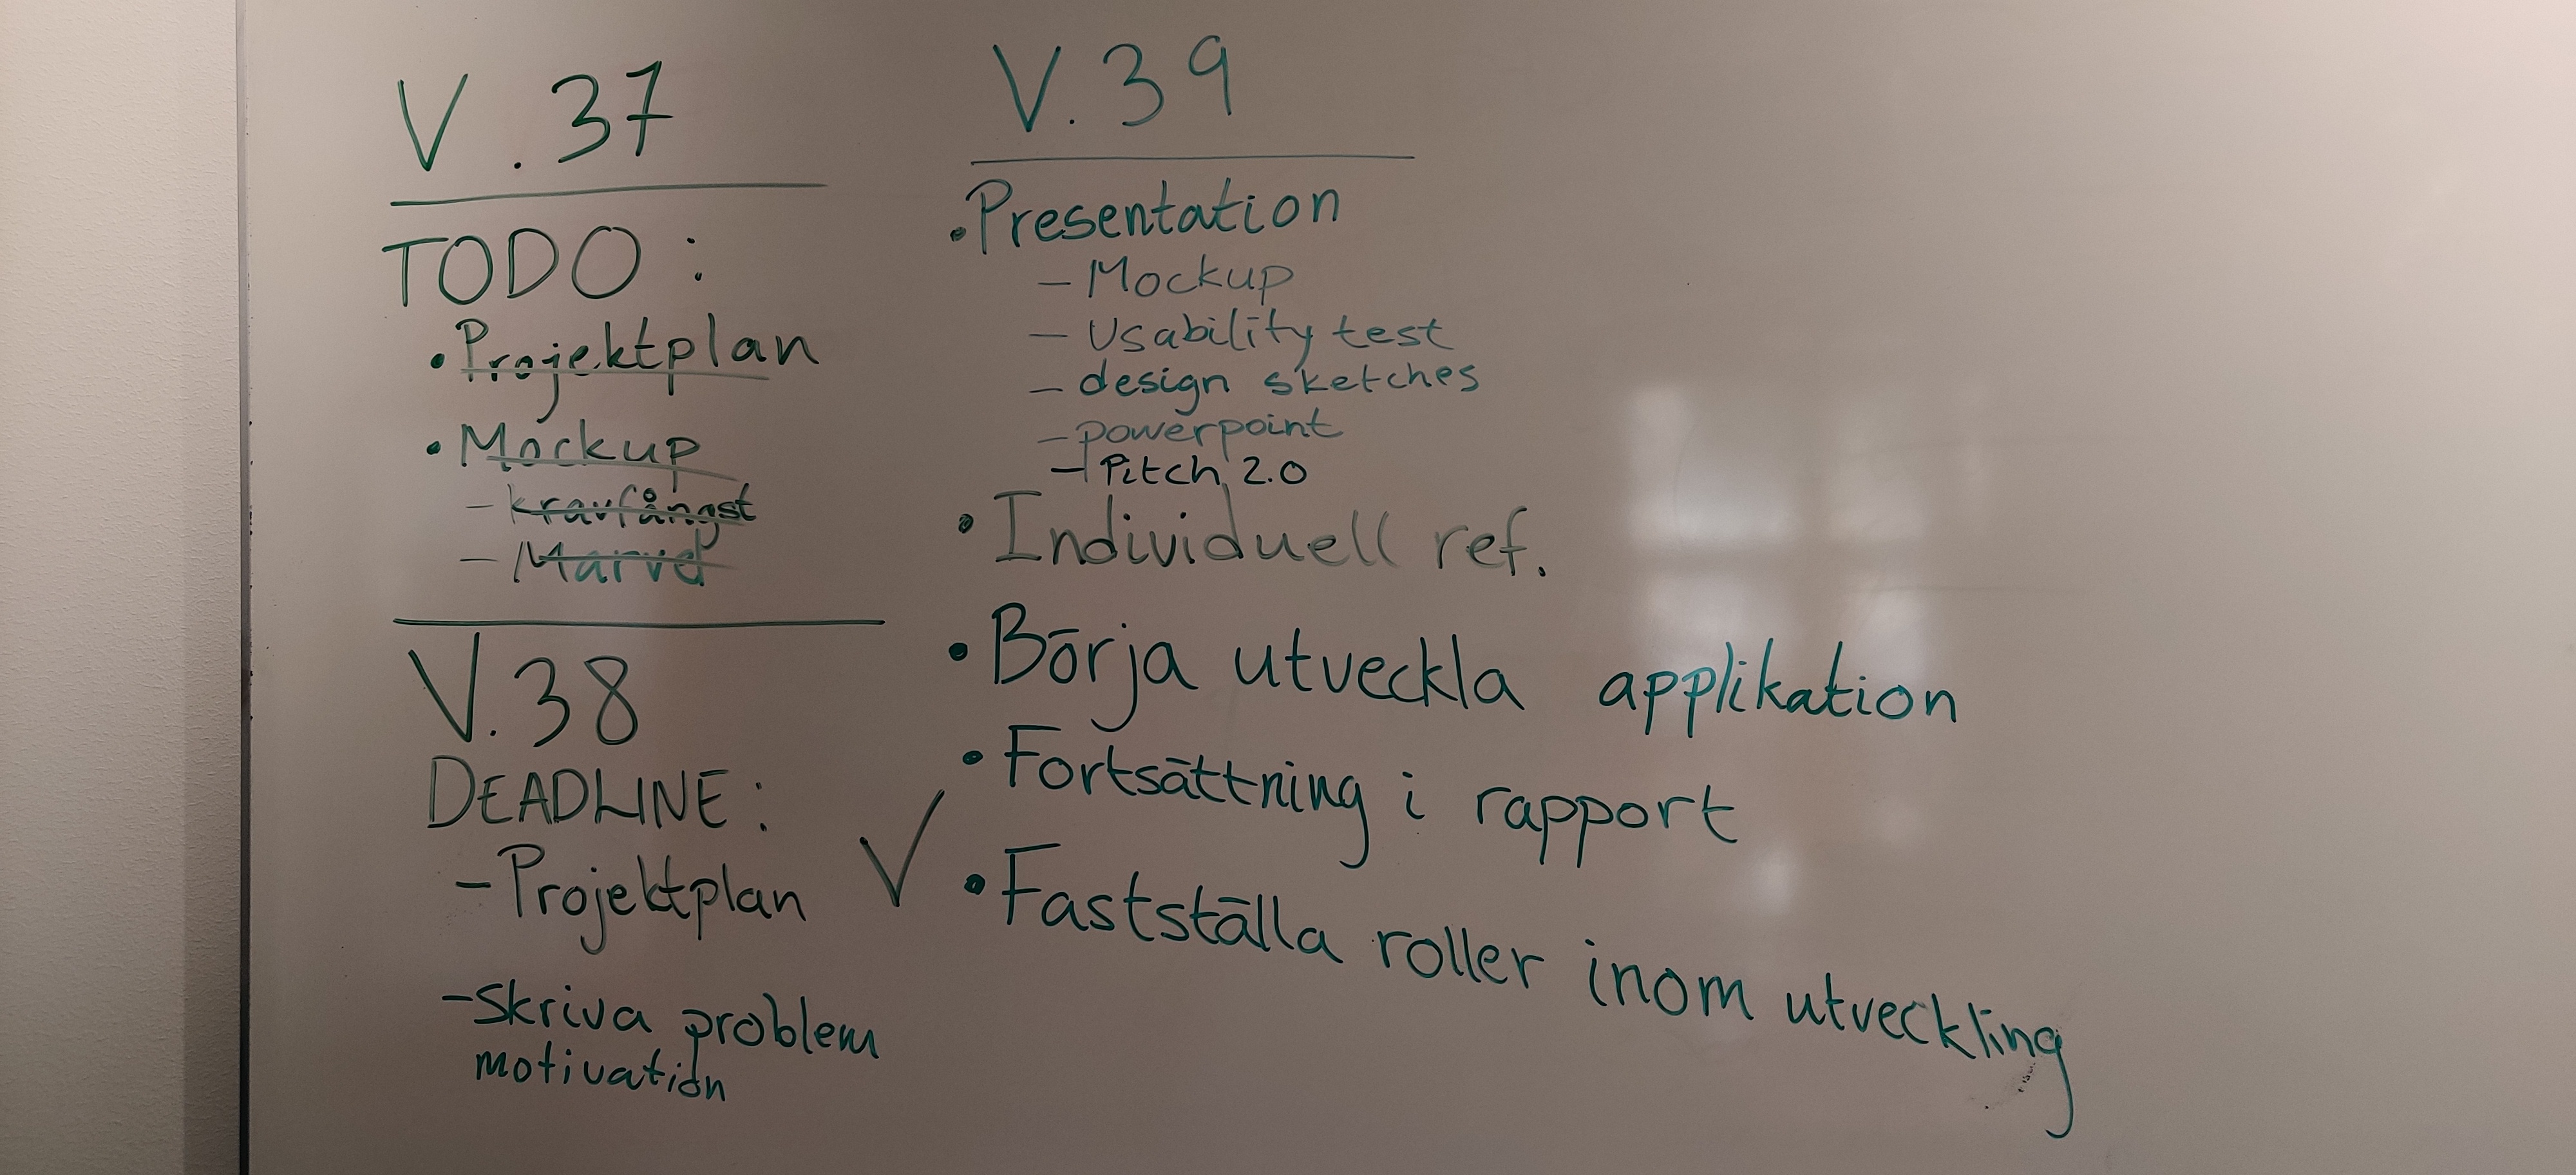 V.37
TODO:
• Projektplan
• Mockup
- kravfångst
- Marvel
V.38
DEADLINE:
- Projektplan ✓
- Skriva problem
motivation
V.39
• Presentation
- Mockup
- Usability test
- design sketches
- powerpoint
- Pitch 2.0
• Individuell ref.
• Börja utveckla applikation
• Fortsättning i rapport
• Fastställa roller inom utveckling